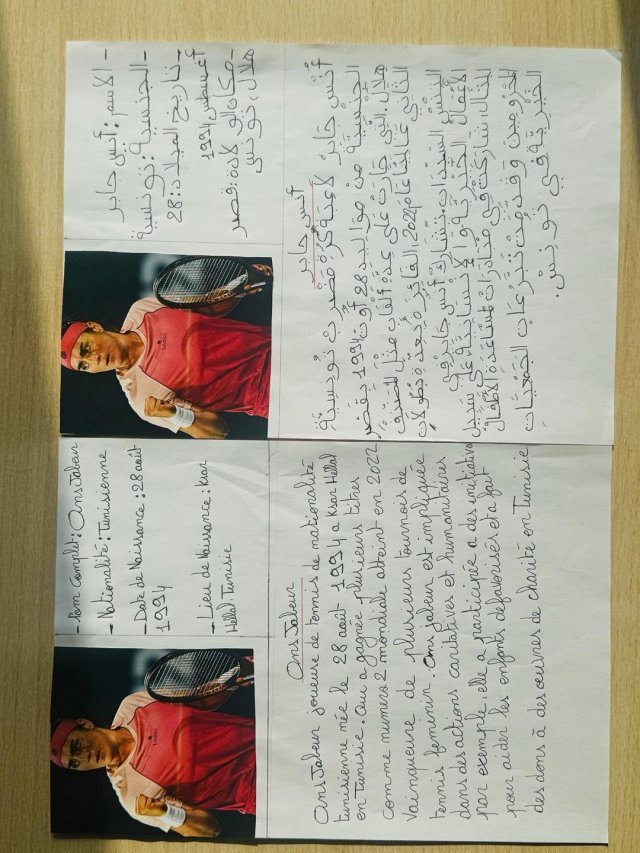 - Nom Complet: Ons Jabeur
- Nationalité: Tunisienne
- Date de Naissance: 28 août
1994
- Lieu de Naissance: ksar
Hellel Tunisie
Ons Jabeur
Ons Jabeur joueuse de tennis de nationalité
tunisienne née le 28 août 1994 a Ksar Hellel
en Tunisie. Qui a gagnée plusieurs titres
comme numero 2 mondiale atteint en 2022
Vainqueure de plusieurs tournois de
tennis feminin. Ons jabeur est impliquée
dans des actions caritatives et humanitaires
par exemple, elle a participée a des initiative
pour aider les enfants defavorisés et a fait
des dons à des œuvres de charité en Tunisie
- الاسم: أنس جابر
- الجنسية: تونسية
- تاريخ الميلاد: 28
أغسطس 1994
- مكان الولادة: قصر
هلال، تونس
أنس جابر
أنس جابر لاعبة كرة مضرب تونسية
الجنسية من مواليد 28 أوت 1994 بقصر
هلال. التي حازت على عدة ألقاب مثل المصنف
الثاني عالميا عام 2022، الفائزة بعدة بطولات
التنس السيدات. تشارك أنس جابر في
الأعمال الخيرية و الإنسانية، على سبيل
المثال، شاركت في مبادرات لمساعدة الأطفال
المحرومين وقدمت تبرعات الجمعيات
الخيرية في تونس.